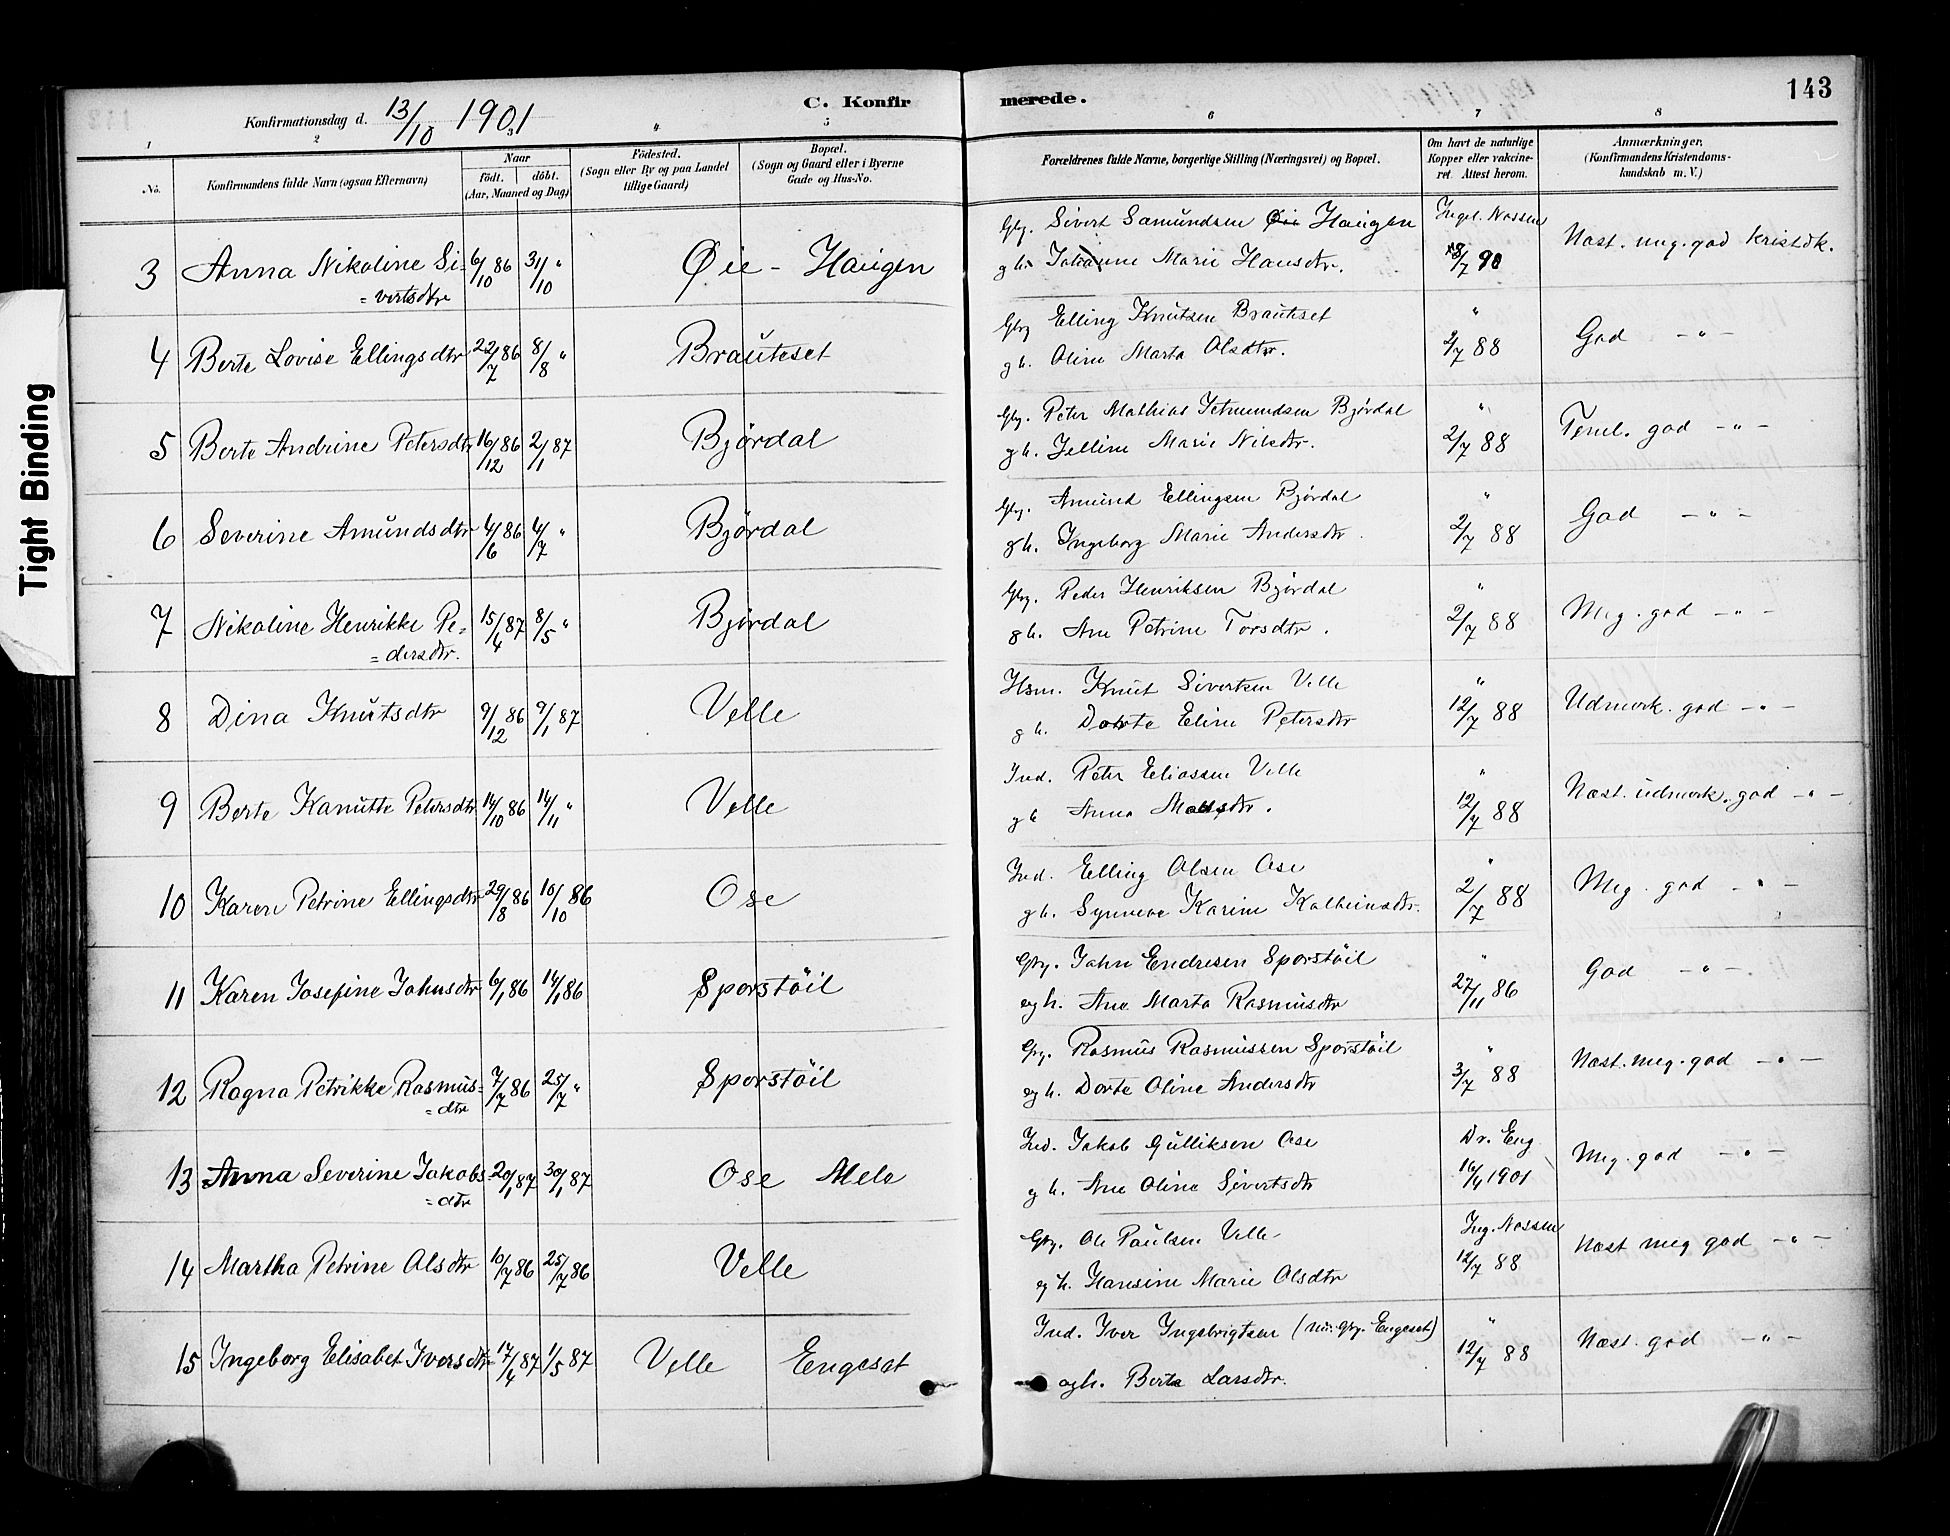 143
C. Konfirmerede.
Konfirmationsdag d. 13/10 1901
1 2 3 4 5 6 7 8
No.
Konfirmandens fulde Navn (ogsaa Efternavn)
Naar
födt. döbt.
(Aar, Maaned og Dag)
Födested.
(Sogn eller By og paa Landet
tillige Gaard)
Bopæl.
(Sogn og Gaard eller i Byerne
Gade og Hus-No.
Forældrenes fulde Navne, borgerlige Stilling (Næringsvei) og Bopæl.
Om havt de naturlige
Kopper eller vakcine-
ret. Attest herom.
Anmærkninger.
(Konfirmandens Kristendoms-
kundskab m. V.)
Tight Binding
3 Anna Nikoline Si= 6/10 86 31/10 " Øie - Haugen
= vertsdtr
Gbr. Sivert Samundsen Øie Haugen Ingel. Nossen
g h. Johanne Marie Hansdtr. 18/7 90 Næst. meg. god kristdk.
4 Berte Lovise Ellingsdtr 22/7 86 8/8 " Brauteset
Gbr Elling Knutsen Brauteset "
g h. Oline Marta Olsdtr. 2/7 88 God - " -
5 Berte Andrine Petersdtr 16/12 86 2/1 87 Bjørdal
Gbr. Peter Mathias Setmundsen Bjørdal "
g h. Jelline Marie Nilsdtr. 2/7 88 Teml. god - " -
6 Severine Amundsdtr 4/6 86 4/7 " Bjørdal
Gbr. Amund Ellingsen Bjørdal "
g h. Ingeborg Marie Andersdtr. 2/7 88 God - " -
7 Nikoline Henrikke Pe= 15/4 87 8/5 " Bjørdal
= dersdtr.
Gbr. Peder Henriksen Bjørdal "
g h. Ane Petrine Torsdtr. 2/7 88 Meg. god - " -
8 Dina Knutsdtr 9/12 86 9/1 87 Velle
Hsm. Knut Sivertsen Velle "
g h. Dorte Eline Petersdtr 12/7 88 Udmerk. god - " -
9 Berte Kanutte Petersdtr 14/10 86 14/11 " Velle
Ind. Peter Eliassen Velle "
g h Anna Matsdtr. 12/7 88 Næst. udmerk. god - " -
10 Karen Petrine Ellingsdtr 29/8 86 10/10 86 Ose
Ind. Elling Olsen Ose "
g h. Synneve Karine Kolbeinsdtr. 2/7 88 Meg. god - " -
11 Karen Josefine Johnsdtr 6/1 86 14/1 86 Sporstöil
Gbr. John Endresen Sporstöil "
og h. Ane Marta Rasmusdtr 27/11 86 God - " -
12 Ragna Petrikke Rasmus= 7/7 86 25/7 " Sporstöil
= dtr
Gbr. Rasmus Rasmussen Sporstöil "
og h. Dorte Oline Andersdtr 3/7 88 Næst. meg. god - " -
13 Anna Severine Jakobs= 20/1 87 30/1 87 Ose Mele
= dtr
Ind. Jakob Gulliksen Ose Dr. Eng
g h. Ane Oline Sivertsdtr 16/4 1901 Meg. god - " -
14 Martha Petrine Olsdtr 10/7 86 25/7 86 Velle
Gbr. Ole Paulsen Velle Ing. Nossen
og h. Hansine Marie Olsdtr 12/7 88 Næst meg god - " -
15 Ingeborg Elisabet Iversdtr 17/4 87 1/5 87 Velle Engeset
Ind. Iver Ingebrigtsen (nu: Gbr. Engeset) "
og h. Berte Larsdtr. 12/7 88 Næst. god - " -